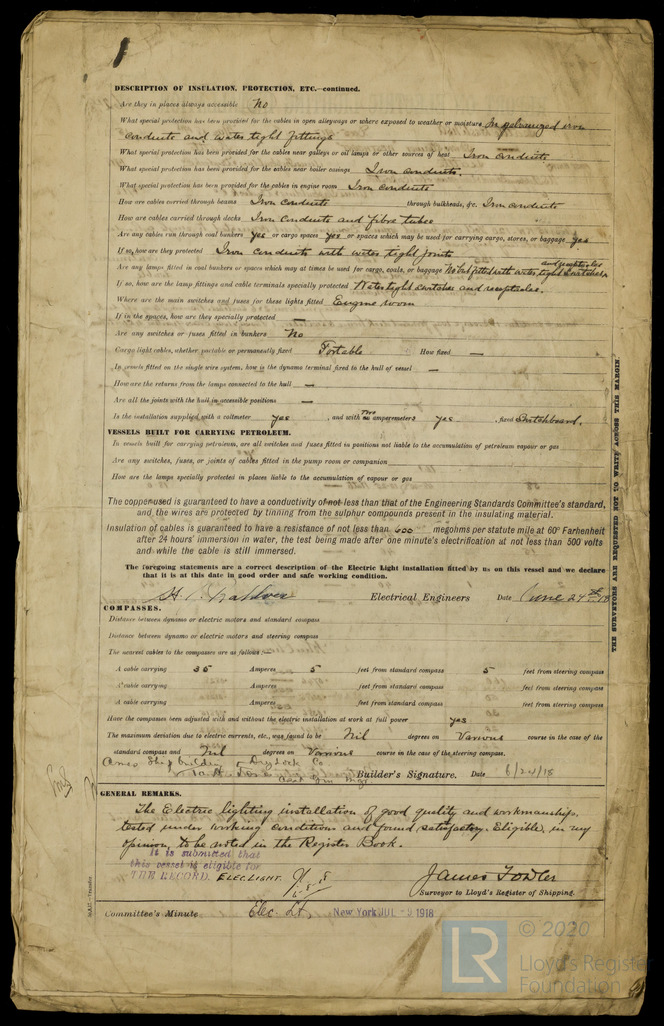 DESCRIPTION OF INSULATION, PROTECTION, ETC.—continued.
Are they in places always accessible No
What special protection has been provided for the cables in open alleyways or where exposed to weather or moisture In galvanized iron
conduits and water tight fittings
What special protection has been provided for the cables near galleys or oil lamps or other sources of heat Iron conduits
What special protection has been provided for the cables near boiler casings Iron conduits.
What special protection has been provided for the cables in engine room Iron conduits
How are cables carried through beams Iron conduits through bulkheads, &c. Iron conduits
How are cables carried through decks Iron conduits and fibre tubes
Are any cables run through coal bunkers yes or cargo spaces yes or spaces which may be used for carrying cargo, stores, or baggage yes
If so, how are they protected Iron conduits with water tight joints
Are any lamps fitted in coal bunkers or spaces which may at times be used for cargo, coals, or baggage No but fitted with water tight switches and receptacles
If so, how are the lamp fittings and cable terminals specially protected Watertight switches and receptacles.
Where are the main switches and fuses for these lights fitted Engine room
If in the spaces, how are they specially protected —
Are any switches or fuses fitted in bunkers No
Cargo light cables, whether portable or permanently fixed Portable How fixed —
In vessels fitted on the single wire system, how is the dynamo terminal fixed to the hull of vessel —
How are the returns from the lamps connected to the hull —
Are all the joints with the hull in accessible positions —
Is the installation supplied with a voltmeter yes , and with Two amperemeters yes , fixed Switchboard.
VESSELS BUILT FOR CARRYING PETROLEUM.
In vessels built for carrying petroleum, are all switches and fuses fitted in positions not liable to the accumulation of petroleum vapour or gas
Are any switches, fuses, or joints of cables fitted in the pump room or companion
How are the lamps specially protected in places liable to the accumulation of vapour or gas
The copper used is guaranteed to have a conductivity of not less than that of the Engineering Standards Committee's standard,
and the wires are protected by tinning from the sulphur compounds present in the insulating material.
Insulation of cables is guaranteed to have a resistance of not less than 600 megohms per statute mile at 60° Farhenheit
after 24 hours' immersion in water, the test being made after one minute's electrification at not less than 500 volts
and while the cable is still immersed.
The foregoing statements are a correct description of the Electric Light installation fitted by us on this vessel and we declare
that it is at this date in good order and safe working condition.
Electrical Engineers Date June 24th 18
COMPASSES.
Distance between dynamo or electric motors and standard compass
Distance between dynamo or electric motors and steering compass
The nearest cables to the compasses are as follows:—
A cable carrying 35 Amperes 5 feet from standard compass 5 feet from steering compass
A cable carrying Amperes feet from standard compass feet from steering compass
A cable carrying Amperes feet from standard compass feet from steering compass
Have the compasses been adjusted with and without the electric installation at work at full power yes
The maximum deviation due to electric currents, etc., was found to be Nil degrees on Various course in the case of the
standard compass and Nil degrees on Various course in the case of the steering compass.
Ames Ship building & Dry Dock Co
Builder's Signature. Date 6/24/18
GENERAL REMARKS.
The Electric lighting installation of good quality and workmanship,
tested under working conditions and found satisfactory. Eligible, in my
opinion, to be noted in the Register Book.
It is submitted that
this vessel is eligible for
THE RECORD. ELEC. LIGHT.
James Fowler
Surveyor to Lloyd's Register of Shipping.
Committee's Minute Elec. Lt. New York JUL - 2 1918
THE SURVEYORS ARE REQUESTED NOT TO WRITE ACROSS THIS MARGIN.
LR
© 2020
Lloyd's Register
Foundation